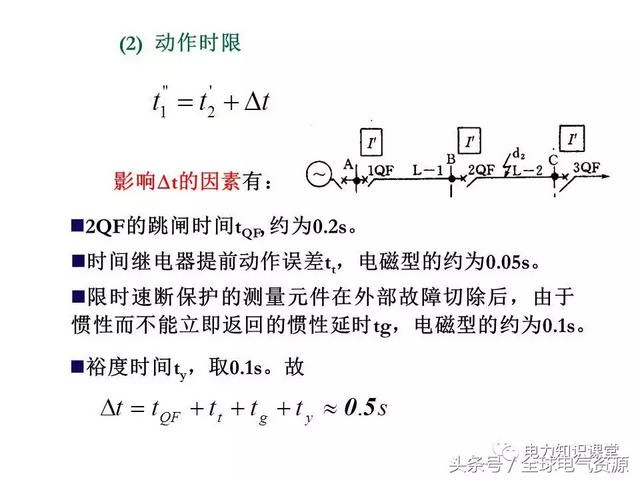 (2) 动作时限
t₁" = t₂' + Δt
I' I' I'
A 1QF L-1 B 2QF d₂ L-2 C 3QF
影响Δt的因素有：
■2QF的跳闸时间t_QF,约为0.2s。
■时间继电器提前动作误差t_t，电磁型的约为0.05s。
■限时速断保护的测量元件在外部故障切除后，由于
惯性而不能立即返回的惯性延时tg，电磁型的约为0.1s。
■裕度时间t_y，取0.1s。故
Δt = t_QF + t_t + t_g + t_y ≈ 0.5s
电力知识课堂
头条号/全球电气资源